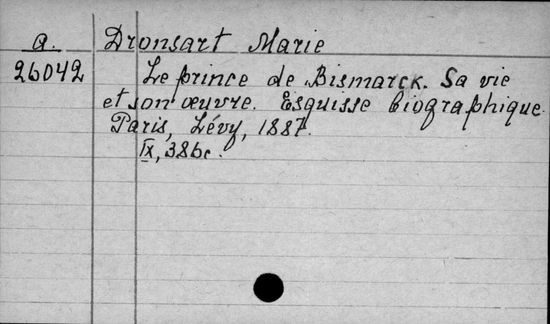 a. Dronsart Marie
26042 Le prince de Bismarck. Sa vie
et son œuvre. Esquisse biographique.
Paris, Lévy, 1887.
IX, 386c.